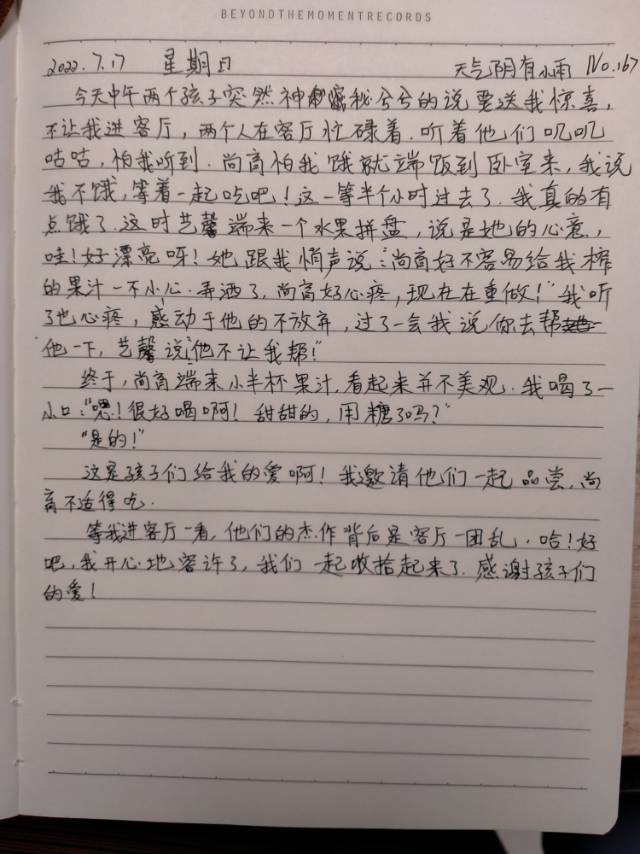 BEYONDTHEMOMENTRECORDS
2022.7.17 星期日 天气阴有小雨 No.167
今天中午两个孩子突然神秘兮兮的说要送我惊喜,
不让我进客厅,两个人在客厅忙碌着.听着他们叽叽
咕咕,怕我听到.尚高怕我饿就端饭到卧室来,我说
我不饿,等着一起吃吧!这一等半个小时过去了.我真的有
点饿了.这时艺馨端来一个水果拼盘,说是她的心意,
哇!好漂亮呀!她跟我悄声说:尚高好不容易给我榨
的果汁一不小心弄洒了,尚高好心疼,现在在重做!"我听
了也心疼,感动于他的不放弃,过了一会我说你去帮
他一下,艺馨说"他不让我帮!"
终于,尚高端来小半杯果汁,看起来并不美观.我喝了一
小口:"嗯!很好喝啊!甜甜的,用糖了吗?"
"是的!"
这是孩子们给我的爱啊!我邀请他们一起品尝,尚
高不适得吃.
等我进客厅一看,他们的杰作背后是客厅一团乱,哈!好
吧,我开心地容许了,我们一起收拾起来了.感谢孩子们
的爱!